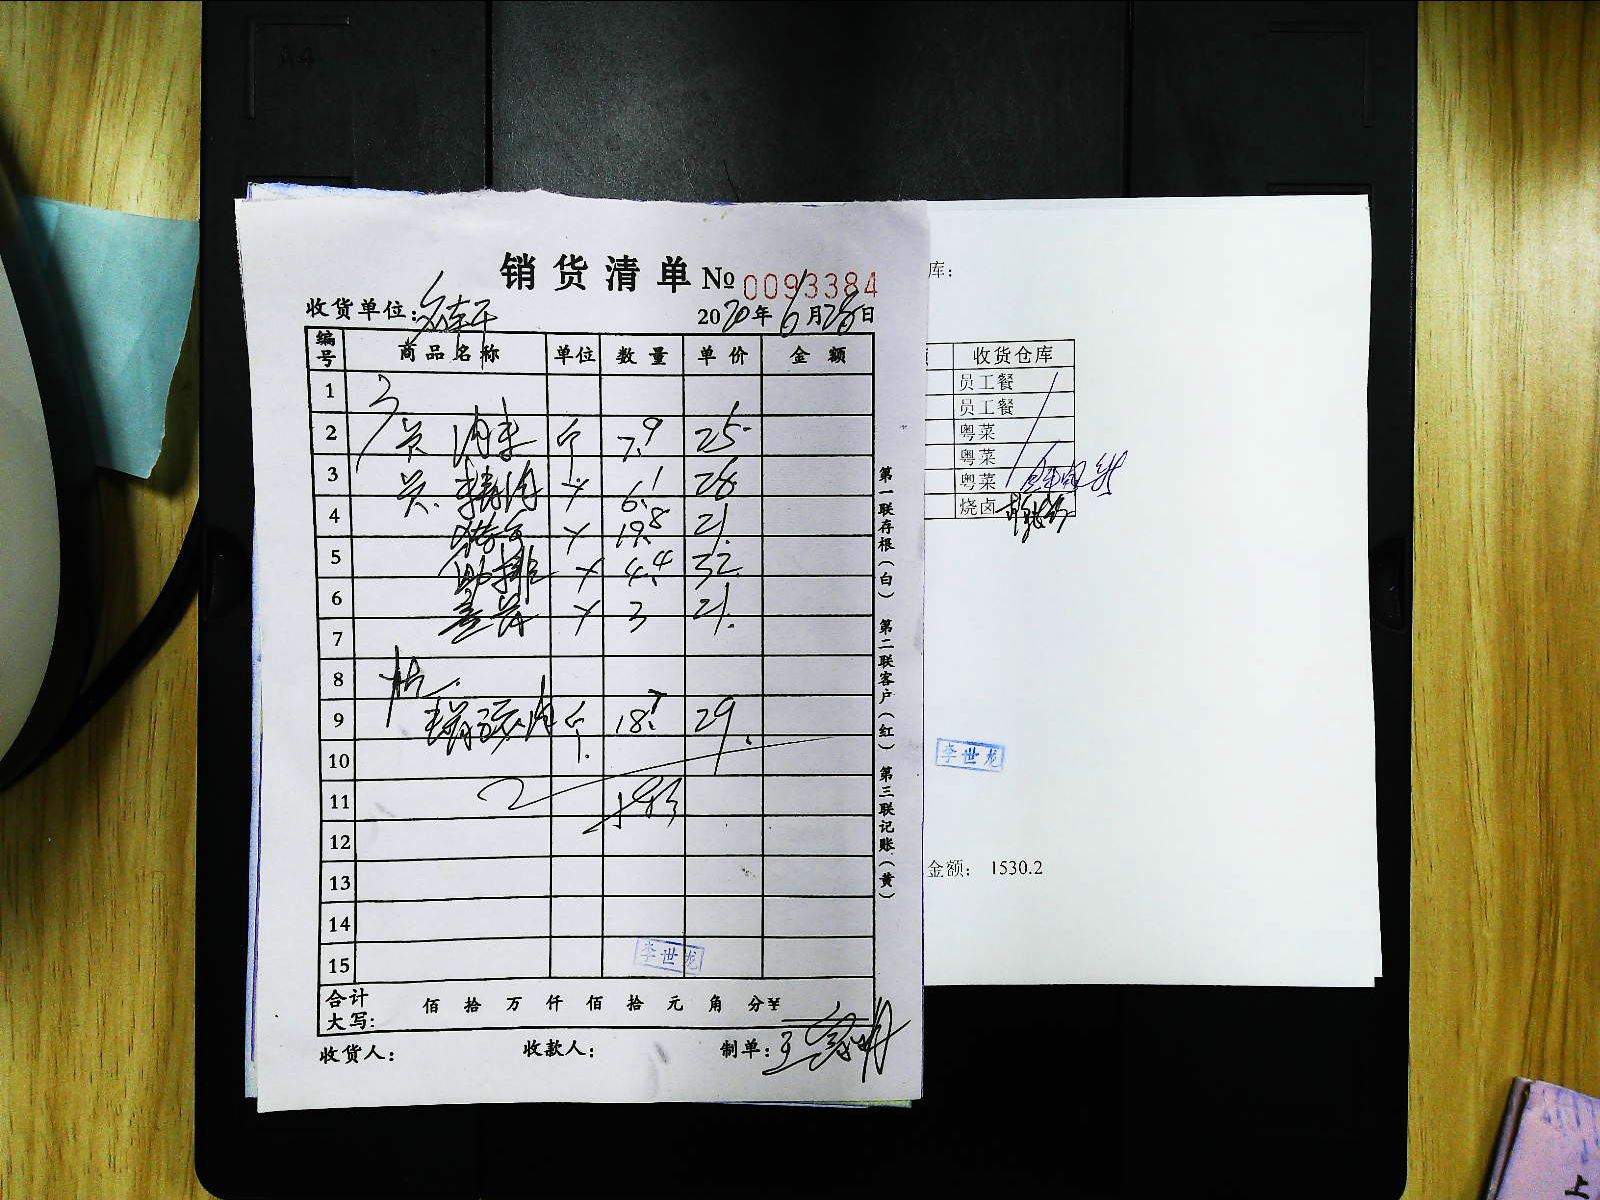 销货清单 № 0093384
收货单位:
2020年6月28日
编号 商品名称 单位 数量 单价 金额
1
2 肉末 个 7.9 25
3 精肉 6.1 28
4 19.8 21
5 助排 4.4 32
6 3 21
7
8
9 18.7 29
10
11
12
13
14
15
李世龙
合计大写: 佰 拾 万 仟 佰 拾 元 角 分¥
收货人: 收款人: 制单:
第一联存根(白) 第二联客户(红) 第三联记账(黄)
库:
收货仓库
员工餐
员工餐
粤菜
粤菜
粤菜
烧卤
李世龙
金额: 1530.2
A4